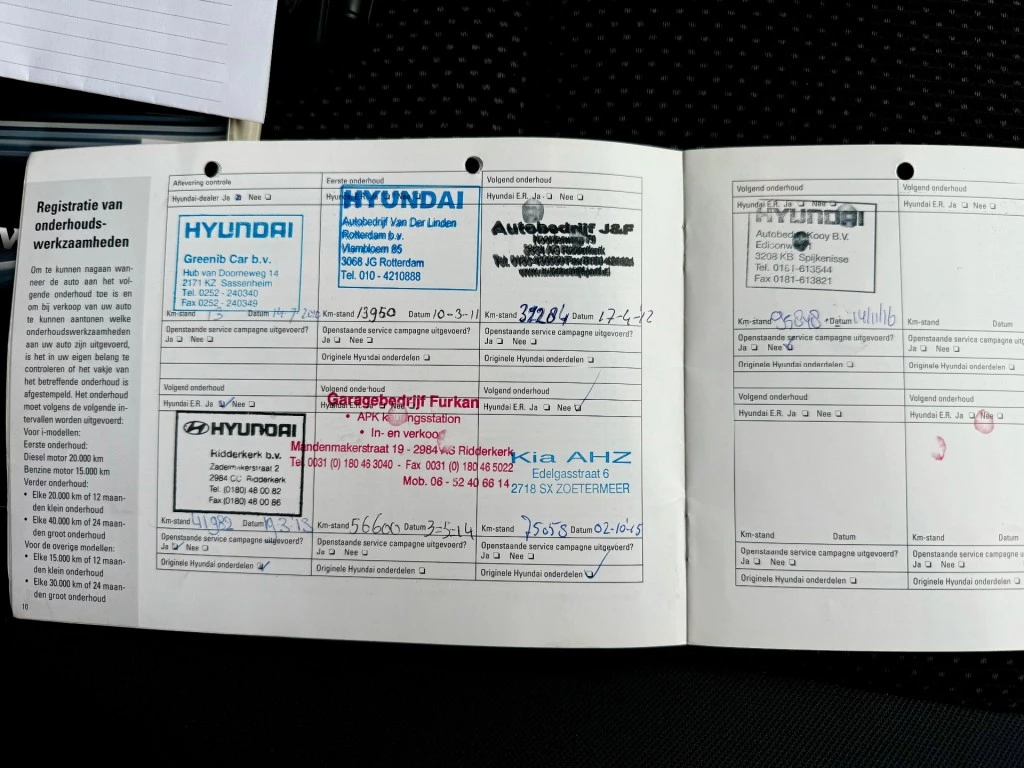 Registratie van
onderhouds-
werkzaamheden
Om te kunnen nagaan wan-
neer de auto aan het vol-
gende onderhoud toe is en
om bij verkoop van uw auto
te kunnen aantonen welke
onderhoudswerkzaamheden
aan uw auto zijn uitgevoerd,
is het in uw eigen belang te
controleren of het vakje van
het betreffende onderhoud is
afgestempeld. Het onderhoud
moet volgens de volgende in-
tervallen worden uitgevoerd:
Voor i-modellen:
Eerste onderhoud:
Diesel motor 20.000 km
Benzine motor 15.000 km
Verder onderhoud:
• Elke 20.000 km of 12 maan-
den klein onderhoud
• Elke 40.000 km of 24 maan-
den groot onderhoud
Voor de overige modellen:
• Elke 15.000 km of 12 maan-
den klein onderhoud
• Elke 30.000 km of 24 maan-
den groot onderhoud
10
Aflevering controle
Hyundai-dealer Ja Nee
HYUNDAI
Greenib Car b.v.
Hub van Doorneweg 14
2171 KZ Sassenheim
Tel. 0252 - 240340
Fax 0252 - 240349
Km-stand 13 Datum
Openstaande service campagne uitgevoerd?
Ja Nee
Eerste onderhoud
HYUNDAI
Autobedrijf Van Der Linden
Rotterdam b.v.
Vlambloem 85
3068 JG Rotterdam
Tel. 010 - 4210888
Km-stand 13950 Datum 10-3-11
Openstaande service campagne uitgevoerd?
Ja Nee
Originele Hyundai onderdelen
Volgend onderhoud
Hyundai E.R. Ja Nee
Autobedrijf J&F
Km-stand 32284 Datum 17-4-12
Openstaande service campagne uitgevoerd?
Ja Nee
Originele Hyundai onderdelen
Volgend onderhoud
Hyundai E.R. Ja Nee
HYUNDAI
Ridderkerk b.v.
Zadenmakerstraat 2
2984 CC Ridderkerk
Tel. (0180) 48 00 82
Fax (0180) 48 00 86
Km-stand 41982 Datum 19.3.13
Openstaande service campagne uitgevoerd?
Ja Nee
Originele Hyundai onderdelen
Volgend onderhoud
Garagebedrijf Furkan
• APK keuringsstation
• In- en verkoop
Mandenmakerstraat 19 - 2984 AS Ridderkerk
Tel. 0031 (0) 180 46 3040 - Fax 0031 (0) 180 46 5022
Mob. 06 - 52 40 66 14
Km-stand 56600 Datum 3-5-14
Openstaande service campagne uitgevoerd?
Ja Nee
Originele Hyundai onderdelen
Volgend onderhoud
Hyundai E.R. Ja Nee
Kia AHZ
Edelgasstraat 6
2718 SX ZOETERMEER
Km-stand 75058 Datum 02-10-15
Openstaande service campagne uitgevoerd?
Ja Nee
Originele Hyundai onderdelen
Volgend onderhoud
Hyundai E.R. Ja Nee
HYUNDAI
Kooy B.V.
3208 KB Spijkenisse
Tel. 0181-613544
Fax 0181-613821
Km-stand 95848 Datum 14/11/16
Openstaande service campagne uitgevoerd?
Ja Nee
Originele Hyundai onderdelen
Volgend onderhoud
Hyundai E.R. Ja Nee
Km-stand Datum
Openstaande service campagne
Ja Nee
Originele Hyundai onderdelen
Volgend onderhoud
Hyundai E.R. Ja Nee
Km-stand Datum
Openstaande service campagne uitgevoerd?
Ja Nee
Originele Hyundai onderdelen
Volgend onderhoud
Hyundai E.R. Ja Nee
Km-stand Datum
Openstaande service campagne
Ja Nee
Originele Hyundai onderdelen